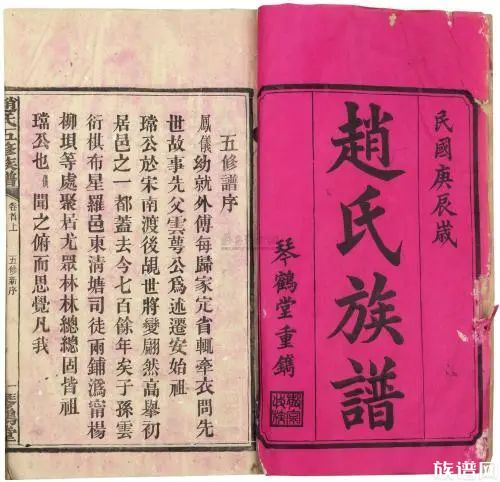 民國庚辰歲
趙氏族譜
琴鶴堂重鐫
五修譜序
鳳儀幼就外傳每歸家定省輒牽衣問先
世故事先父雲萼公為述遷安始祖
璫公於宋南渡後覘世將變翩然高舉初
居邑之一都蓋去今七百餘年矣子孫雲
衍棋布星羅邑東清塘司徒兩鋪溈甯楊
柳塅等處聚居尤眾林林總總固皆祖
璫公也儀聞之俯而思覺凡我
趙氏五修族譜
卷首上
五修新序
一
琴鶴堂
族谱网